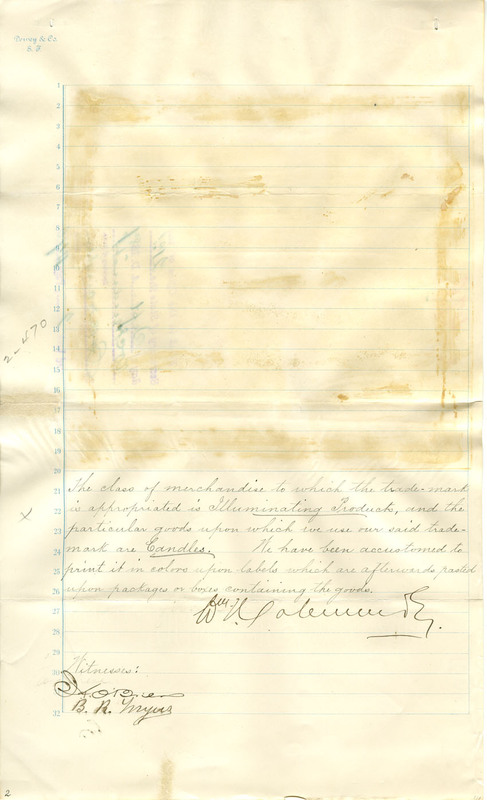 & Co.
S. F.
1
2
3
4
5
6
7
8
9
10
11
12
13
14
15
16
17
18
19
20
21
22
23
24
25
26
27
28
29
30
31
32
2-470
X
The class of merchandise to which the trade-mark
is appropriated is Illuminating Products, and the
particular goods upon which we use our said trade-
mark are Candles. We have been accustomed to
print it in colors upon labels which are afterwards pasted
upon packages or boxes containing the goods.
Wm. T. Coleman & Co.
Witnesses:
B. R. Myers
2